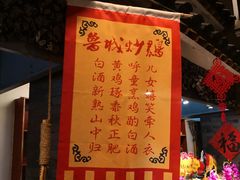 城炒鷄
白酒新熟山中归
黄鸡啄黍秋正肥
呼童烹鸡酌白酒
儿女嬉笑牵人衣
福